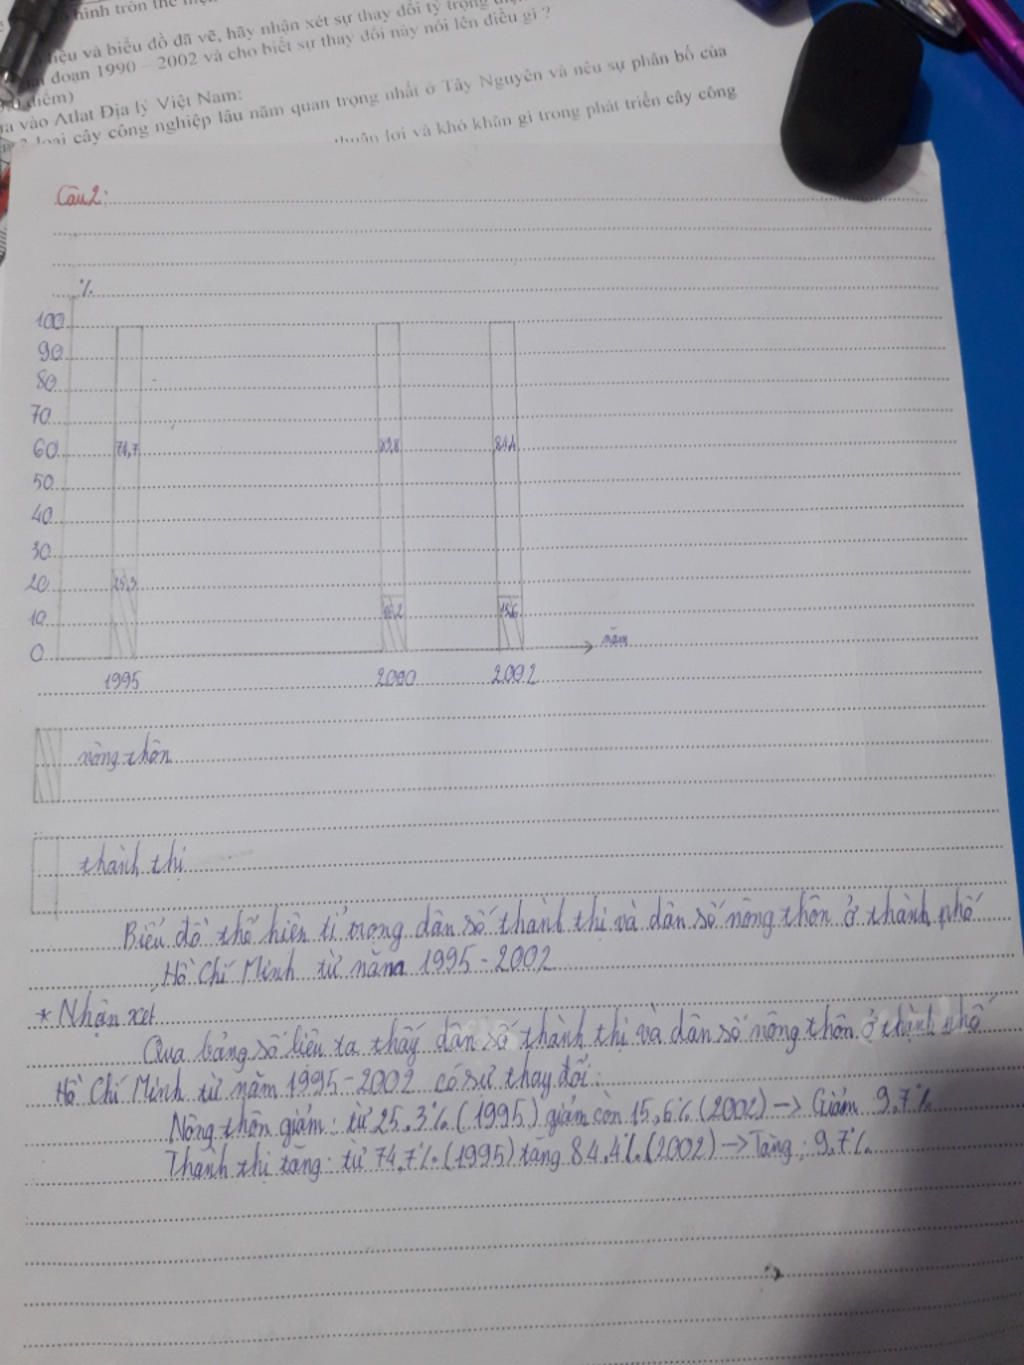 hình tròn thể
liệu và biểu đồ đã vẽ, hãy nhận xét sự thay đổi tỷ trọng
đoạn 1990 – 2002 và cho biết sự thay đổi này nói lên điều gì ?
điểm)
vào Atlat Địa lý Việt Nam:
loại cây công nghiệp lâu năm quan trọng nhất ở Tây Nguyên và nêu sự phân bố của
thuận lợi và khó khăn gì trong phát triển cây công
Câu 2:
%
100
90
80
70
60
74,7 83,8 84,4
50
40
30
20
25,3
10
16,2 15,6
0
năm
1995 2000 2002
nông thôn
thành thị
Biểu đồ thể hiện tỉ trọng dân số thành thị và dân số nông thôn ở thành phố
Hồ Chí Minh từ năm 1995-2002
* Nhận xét
Qua bảng số liệu ta thấy dân số thành thị và dân số nông thôn ở thành phố
Hồ Chí Minh từ năm 1995-2002 có sự thay đổi:
Nông thôn giảm: từ 25.3% (1995) giảm còn 15,6% (2002) → Giảm 9.7%
Thành thị tăng: từ 74,7% (1995) tăng 84.4% (2002) → Tăng: 9,7%